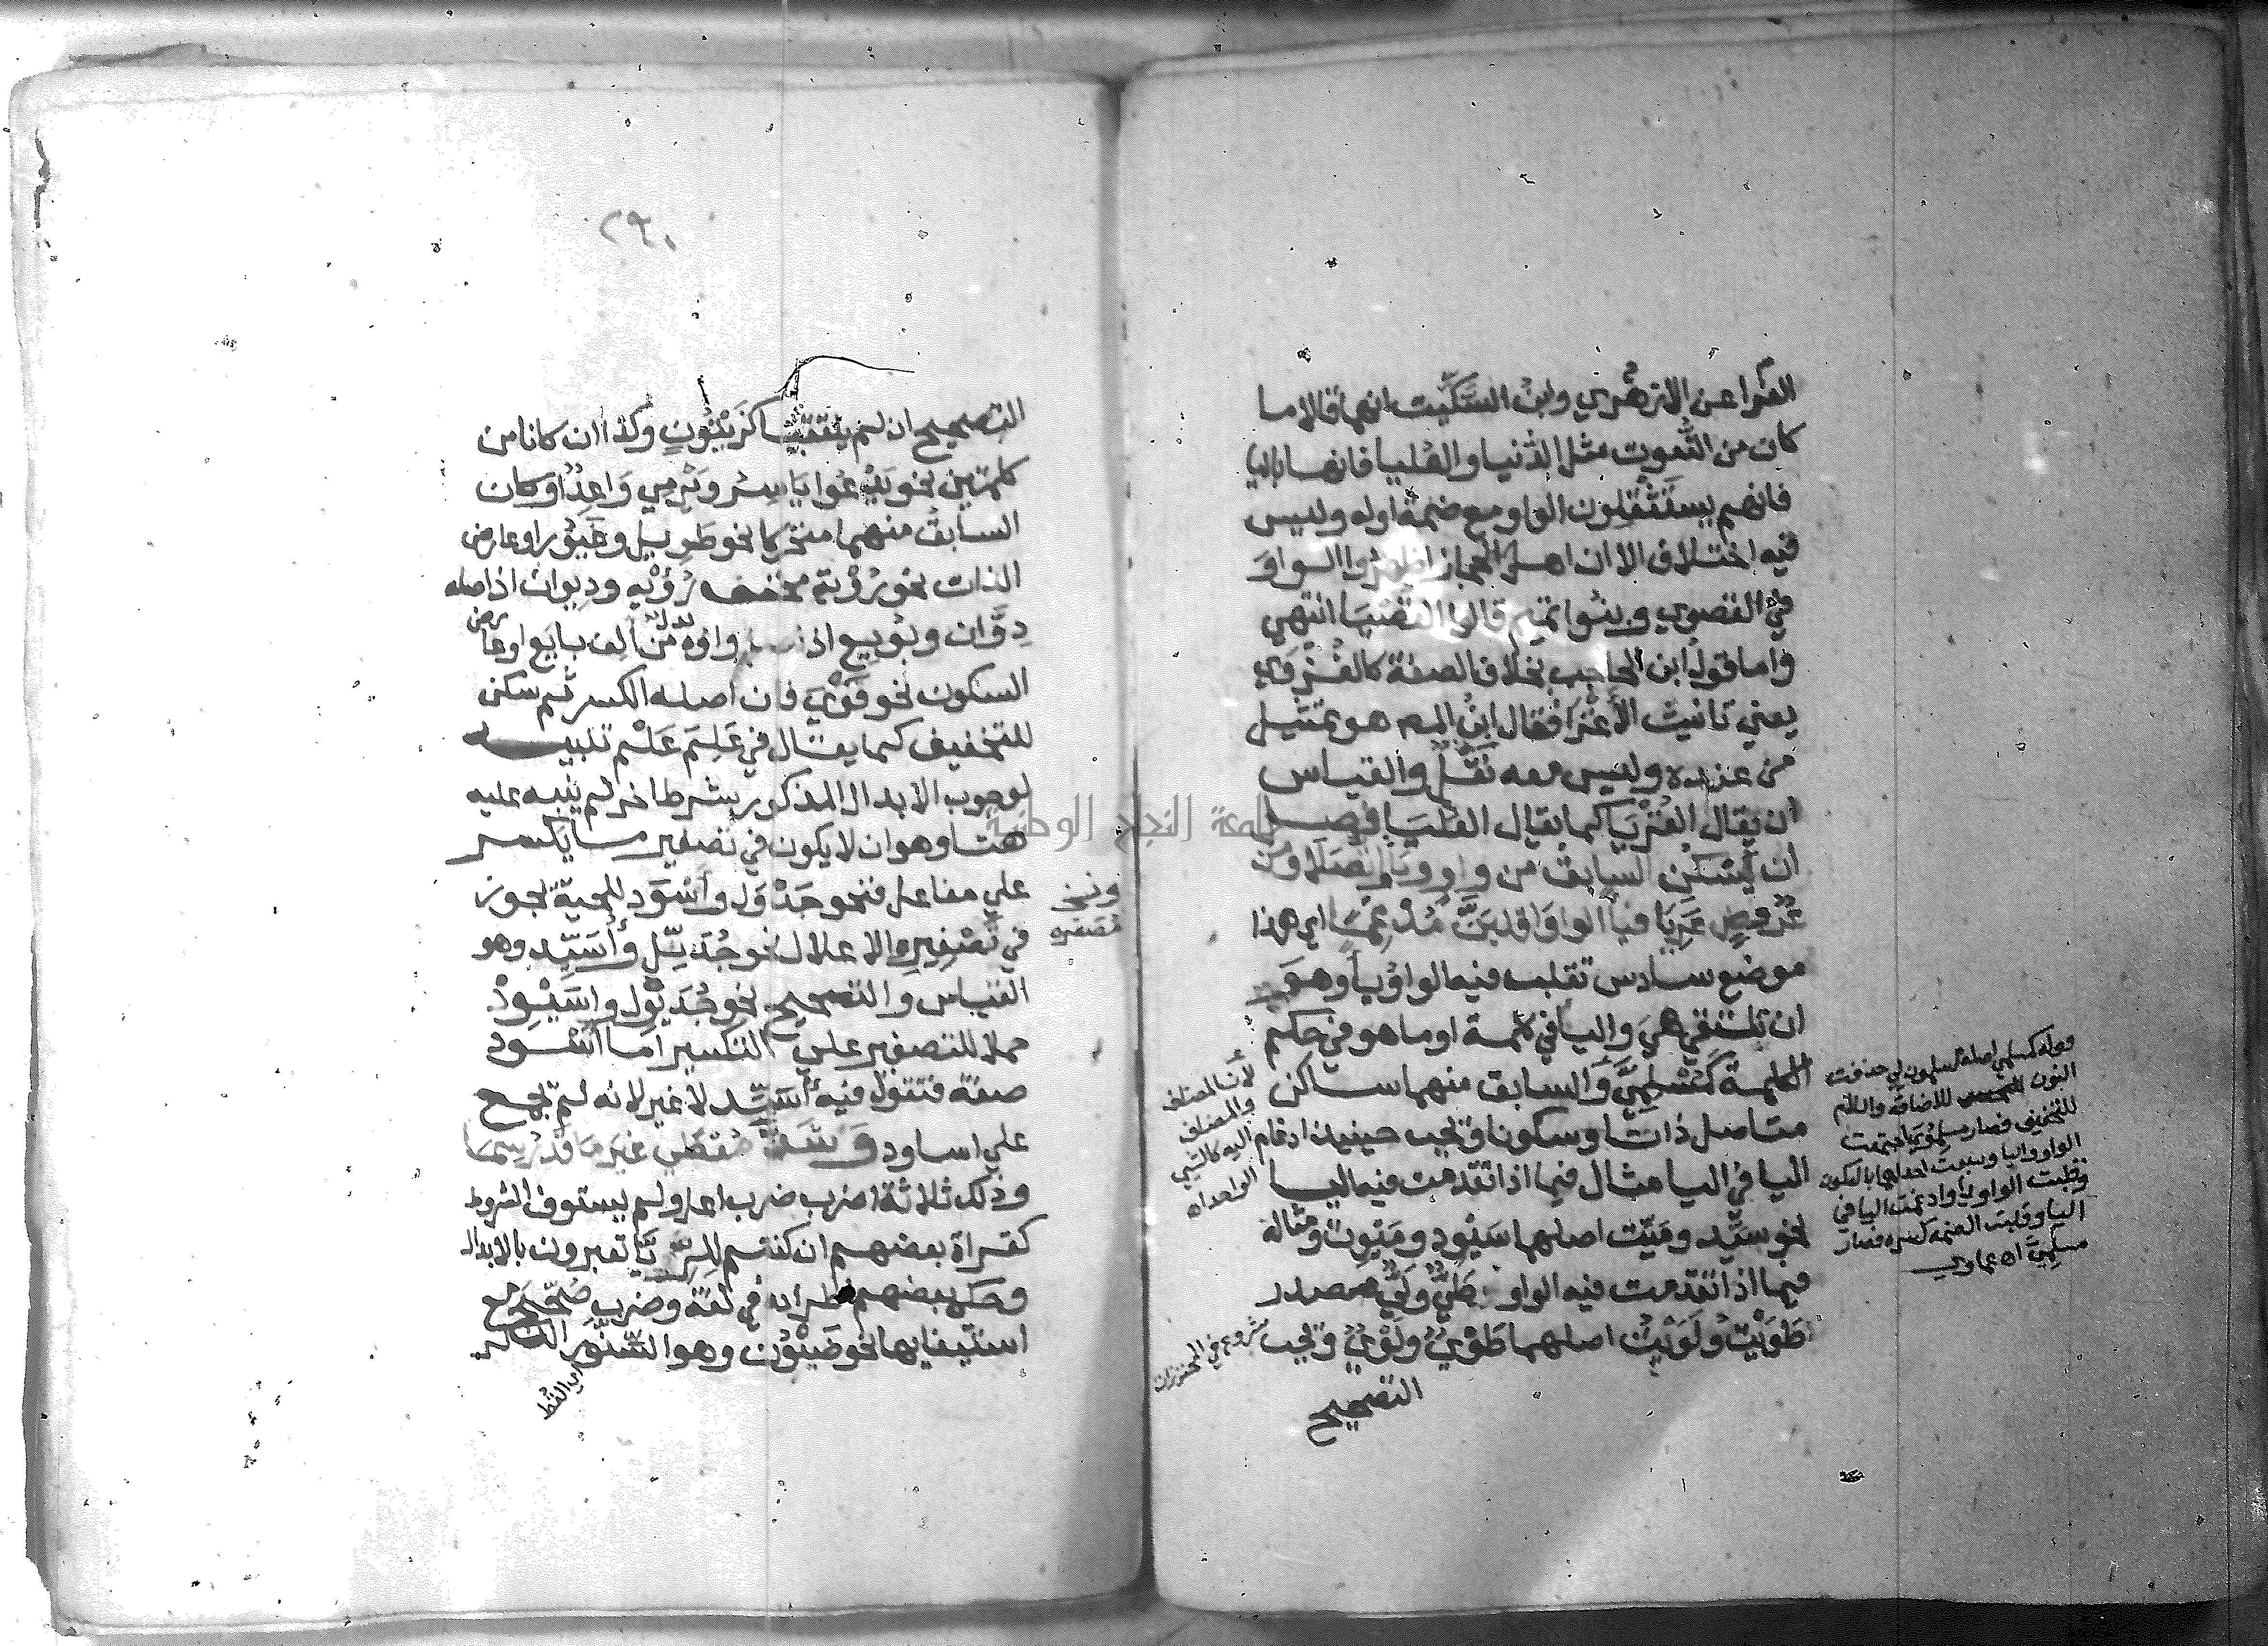 الفرا عن الازهري وابن السكيت انهما قالا ما
كان من النعوت مثل الدنيا والعليا فانها باليا
فانهم يستثقلون الواو مع ضمة اوله وليس
فيه اختلاف الا ان اهل الحجاز اظهروا الواو
في القصوي وبنوا تميم قالوا القصيا انتهي
واما قول ابن الحاجب بخلاف الصفة كالغزوي
يعني تانيث الاغزا فقال ابن المص هو تمثيل
من عنده وليس معه نقل والقياس
ان يقال الغزيا كما يقال العليا فصل
ان يسكن السابق من واو ويا واتصلا ومن
عروض عريا فيا الواو اقلبن مدغما اي هذا
موضع سادس تقلب فيه الواو يا وهو
ان تلتقي هي واليا في كلمة او ما هو في حكم
الكلمة كمسلمي والسابق منهما ساكن
متاصل ذاتا وسكونا ويجب حينيذ ادغام
اليا في اليا مثال فيما اذا تقدمت فيه اليا
نحو سيد وميت اصلهما سيود وميوت ومثاله
فيما اذا تقدمت فيه الواو طي ولي مصدر
طويت ولويت اصلهما طوي ولوي ويجب
التصحيح
لان المضاف
والمضاف
اليه كالشي
الواحد اه
شروع في المحترزات
قوله كمسلمي اصله مسلمون لي حذفت
النون للاضافة واللام
للتخفيف فصار مسلموي اجتمعت
الواو واليا وسبقت احداهما بالسكون
وقلبت الواو يا وادغمت اليا في
اليا وقلبت الضمة كسره فصار
مسلمي اه عماوي
٢٩٠
التصحيح ان لم يلتقيا كزيتون وكذا ان كانا من
كلمتين نحو يدعوا ياسر ويرمي واعد او كان
السابق منهما متحركا نحو طويل وغيور او عارض
الذات نحو روية مخفف رؤيه وديوان اذ اصله
دوان وبويع اذ واوه بدل من الف بايع او عارض
السكون نحو قوي فان اصله الكسر ثم سكن
للتخفيف كما يقال في علم علم تنبيه
لوجوب الابدال المذكور شرط اخر لم ينبه عليه
هنا وهو ان لا يكون في تصغير ما يكسر
علي مفاعل فنحو جدول واسود للحية يجوز
في تصغيره الاعلال نحو جديل واسيد وهو
القياس والتصحيح نحو جديول واسيود
حملا للتصغير علي التكسير اما اسود
صفة فتقول فيه اسيد لا غير لانه لم يجمع
علي اساود وشذ معطي غير ما قد رسما
وذلك ثلاثة اضرب ضرب اعل ولم يستوف الشروط
كقراة بعضهم ان كنتم للريا تعبرون بالابدال
وحكي بعضهم اطراده في لغة وضرب صحح مع
استيفايها نحو ضيون وهو السنور الذكر
اي القط
ونحو
تصغيره
جامعة النجاح الوطنية